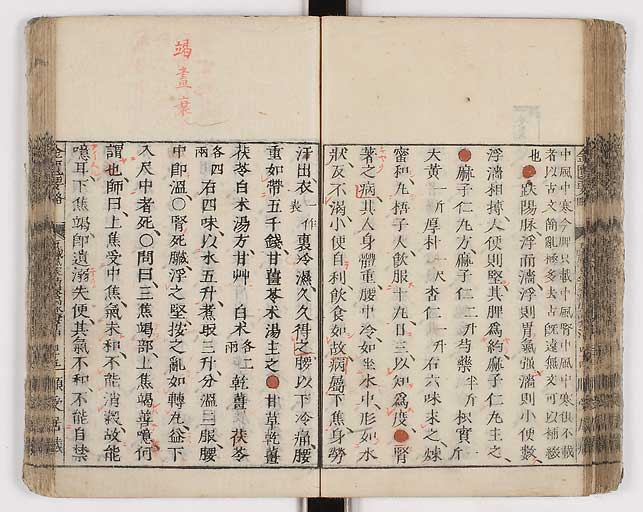 中風中寒今脾只載中風腎中風中寒俱不載
者以古文簡亂極多去古既遠無文可以補綴
也
趺陽脉浮而濇浮則胃氣强濇則小便數
浮濇相摶大便則堅其脾爲約麻子仁丸主之
麻子仁丸方麻子仁二升芍藥半斤枳實一斤
大黄一斤厚朴一尺杏仁一升右六味末之煉
蜜和丸梧子大飲服十丸日三以知爲度腎
著之病其人身體重腰中冷如坐水中形如水
狀反不渴小便自利飲食如故病屬下焦身勞
汗出衣一作表裏冷濕久久得之腰以下冷痛腰
重如帶五千錢甘薑苓术湯主之甘草乾薑
茯苓白术湯方甘艸 白术各二兩乾薑 茯苓
各四兩右四味以水五升煮取三升分溫三服腰
中即溫○腎死臟浮之堅按之亂如轉丸益下
入尺中者死○問曰三焦竭部上焦竭善噫何
謂也師曰上焦受中焦氣未和不能消穀故能
噫耳下焦竭即遺溺失便其氣不和不能自禁
竭 盡 衰
金匱要畧